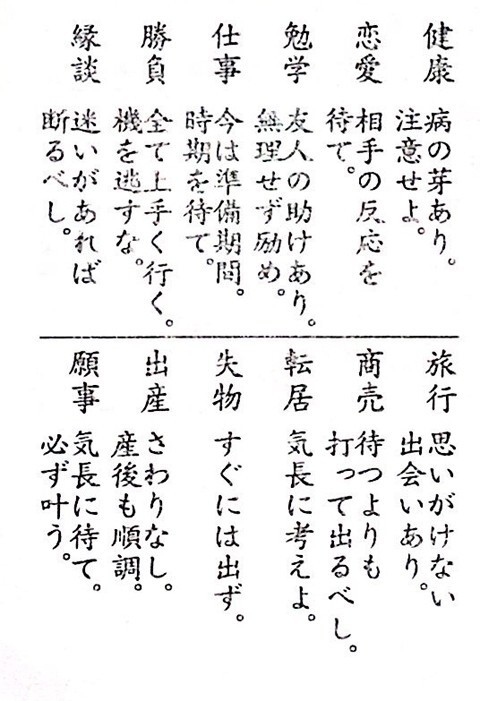 健康
病の芽あり。
注意せよ。
恋愛
相手の反応を
待て。
勉学
友人の助けあり。
無理せず励め。
仕事
今は準備期間。
時期を待て。
勝負
全て上手く行く。
機を逃すな。
縁談
迷いがあれば
断るべし。
旅行
思いがけない
出会いあり。
商売
待つよりも
打って出るべし。
転居
気長に考えよ。
失物
すぐには出ず。
出産
さわりなし。
産後も順調。
願事
気長に待て。
必ず叶う。